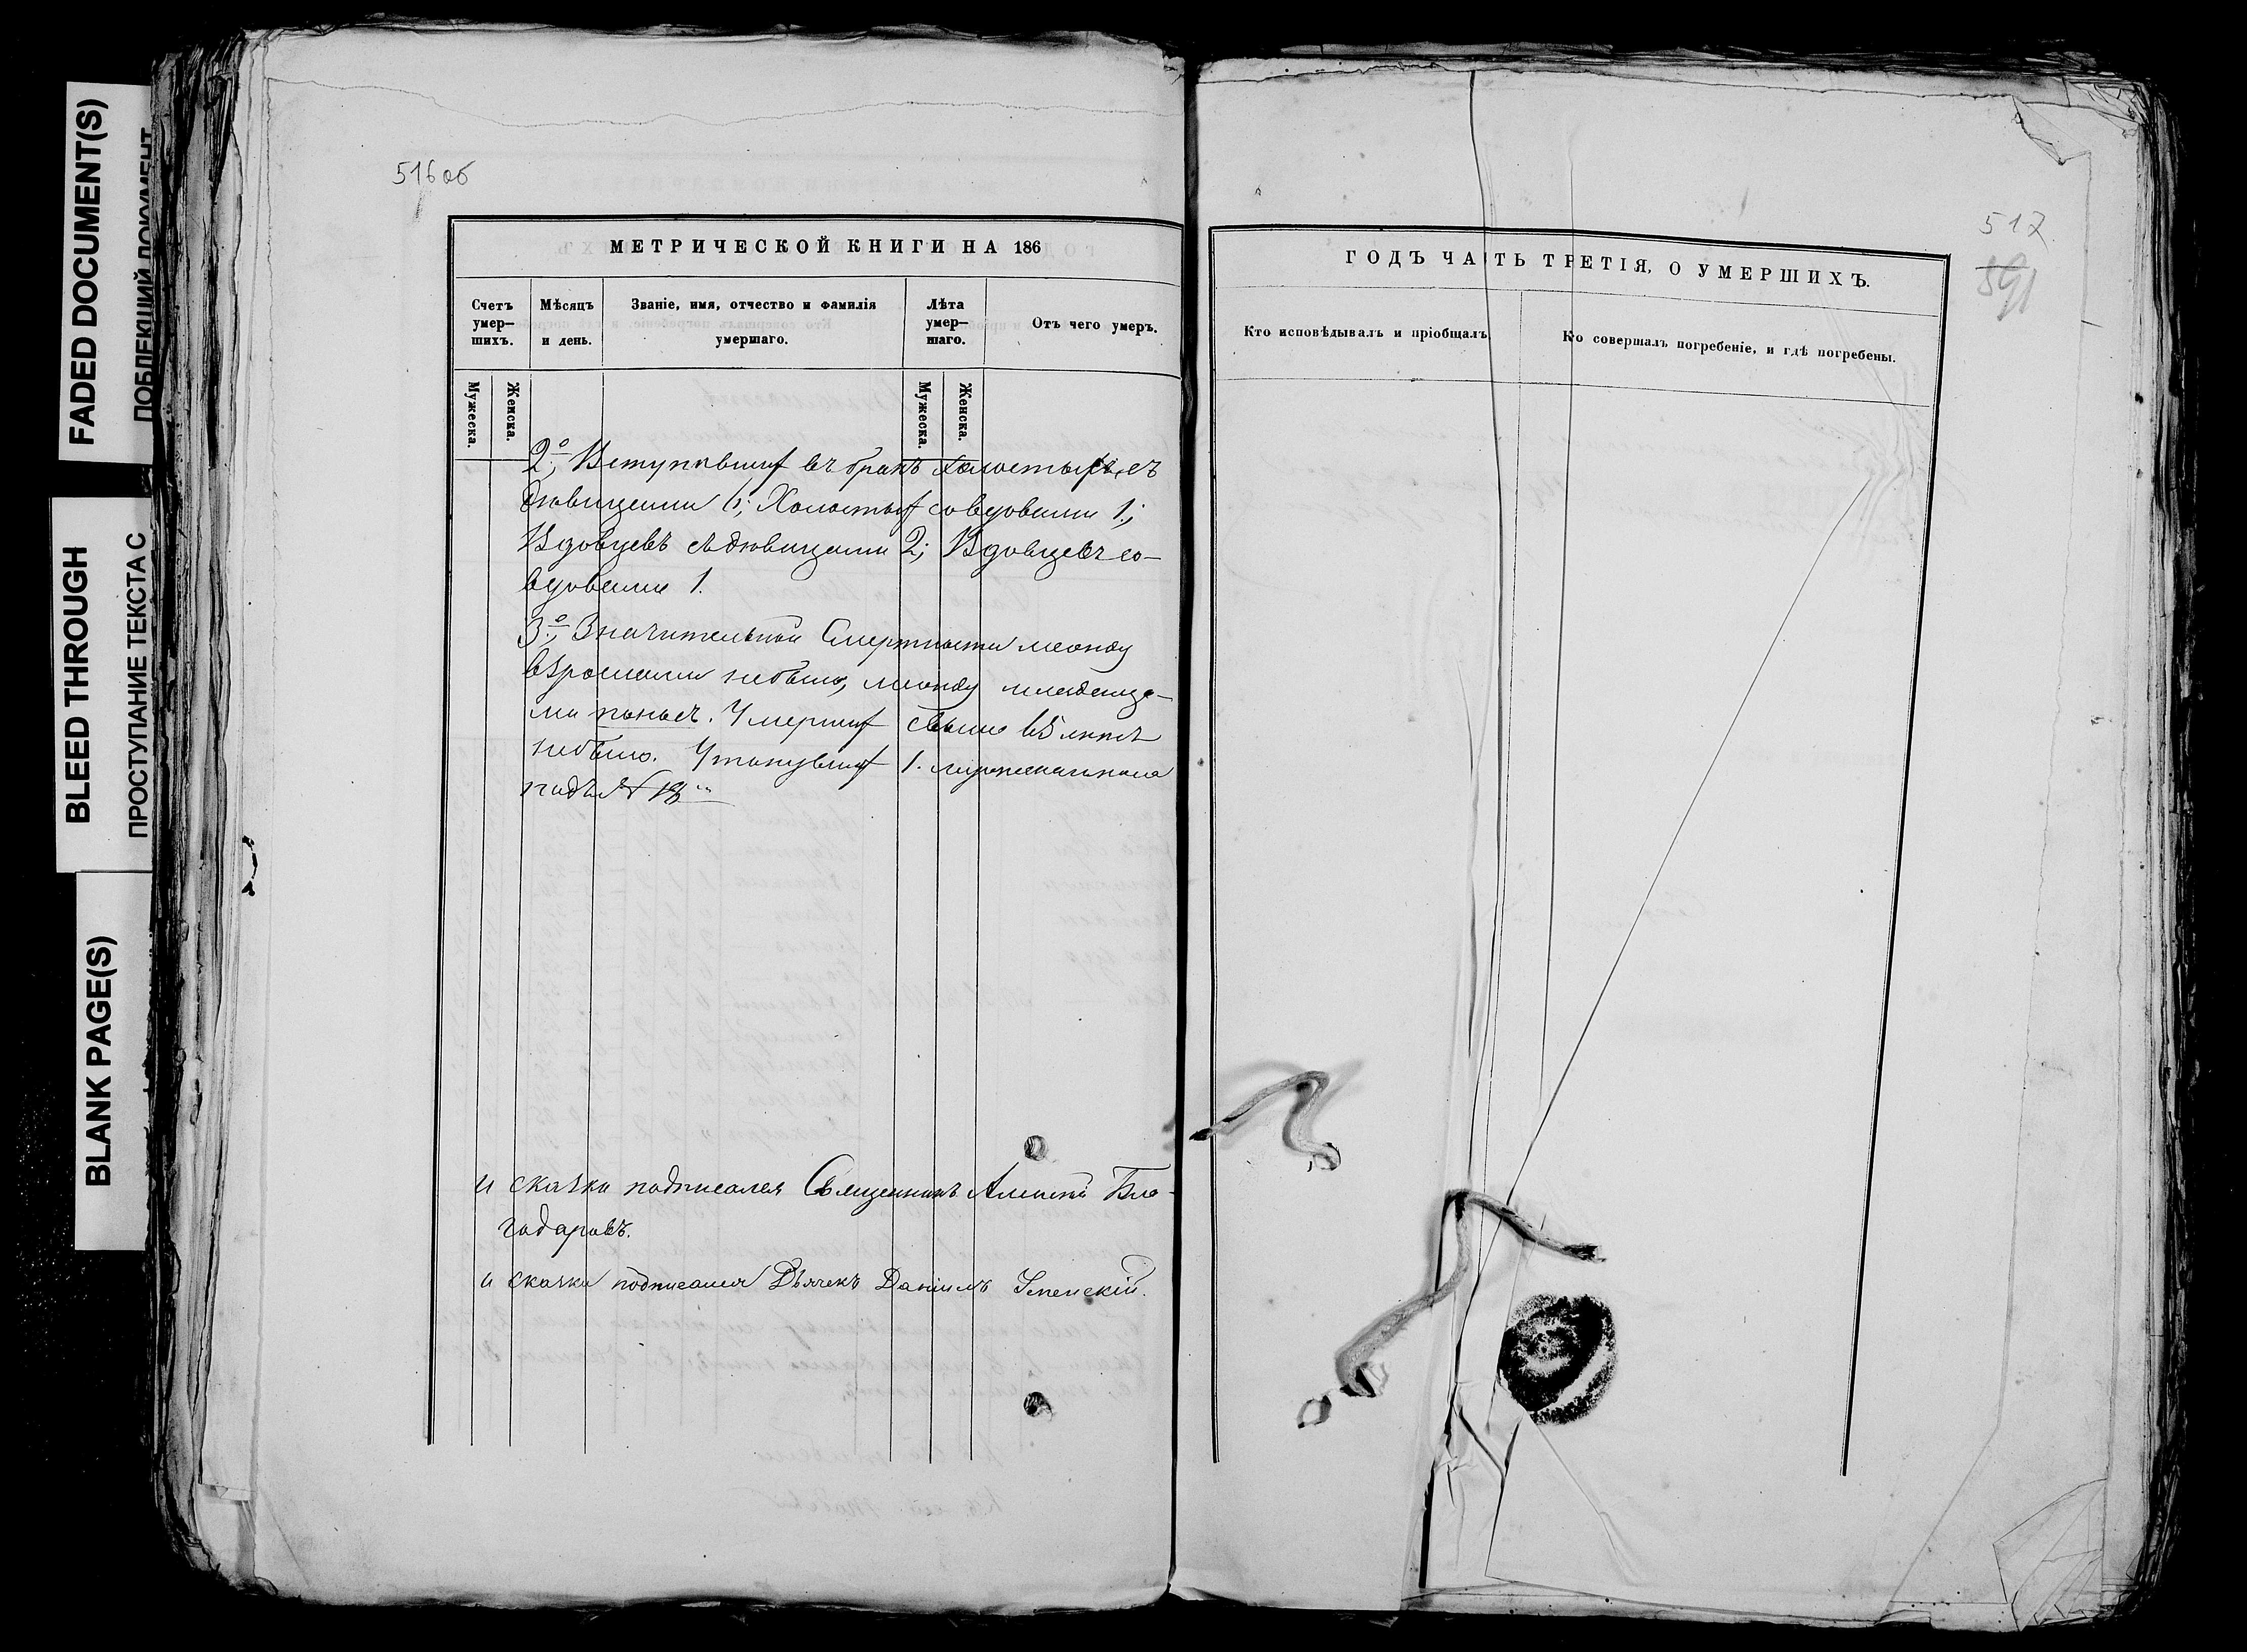 FADED DOCUMENT(S)
ПОБЛЕКШИЙ ДОКУМЕНТ
BLEED THROUGH
ПРОСТУПАНИЕ ТЕКСТА С
BLANK PAGE(S)
516об
МЕТРИЧЕСКОЙ КНИГИ НА 186
Счетъ умер-шихъ.
Мѣсяцъ и день.
Званіе, имя, отчество и фамилія умершаго.
Лѣта умер-шаго.
Отъ чего умеръ.
Мужеска.
Женска.
Мужеска.
Женска.
2е, Вступившихъ въ бракъ холостыхъ съ
дѣвицами 6; Холостыхъ со вдовами 1;
Вдовцевъ съ дѣвицами 2; Вдовцевъ со-
вдовами 1.
3е, Значительной Смертности между
взрослыми небыло, между младенца-
ми поносъ. Умершихъ свыше лѣтъ
небыло. Утонувших 1.
подъ № 18
и скачки подписался Священникъ Алексій Бла-
годаровъ.
и скачки подписался Дьячекъ Даніилъ Успенскій.
517
591
ГОДЪ ЧАСТЬ ТРЕТІЯ, О УМЕРШИХЪ.
Кто исповѣдывалъ и пріобщалъ
Кто совершалъ погребеніе, и гдѣ погребены.